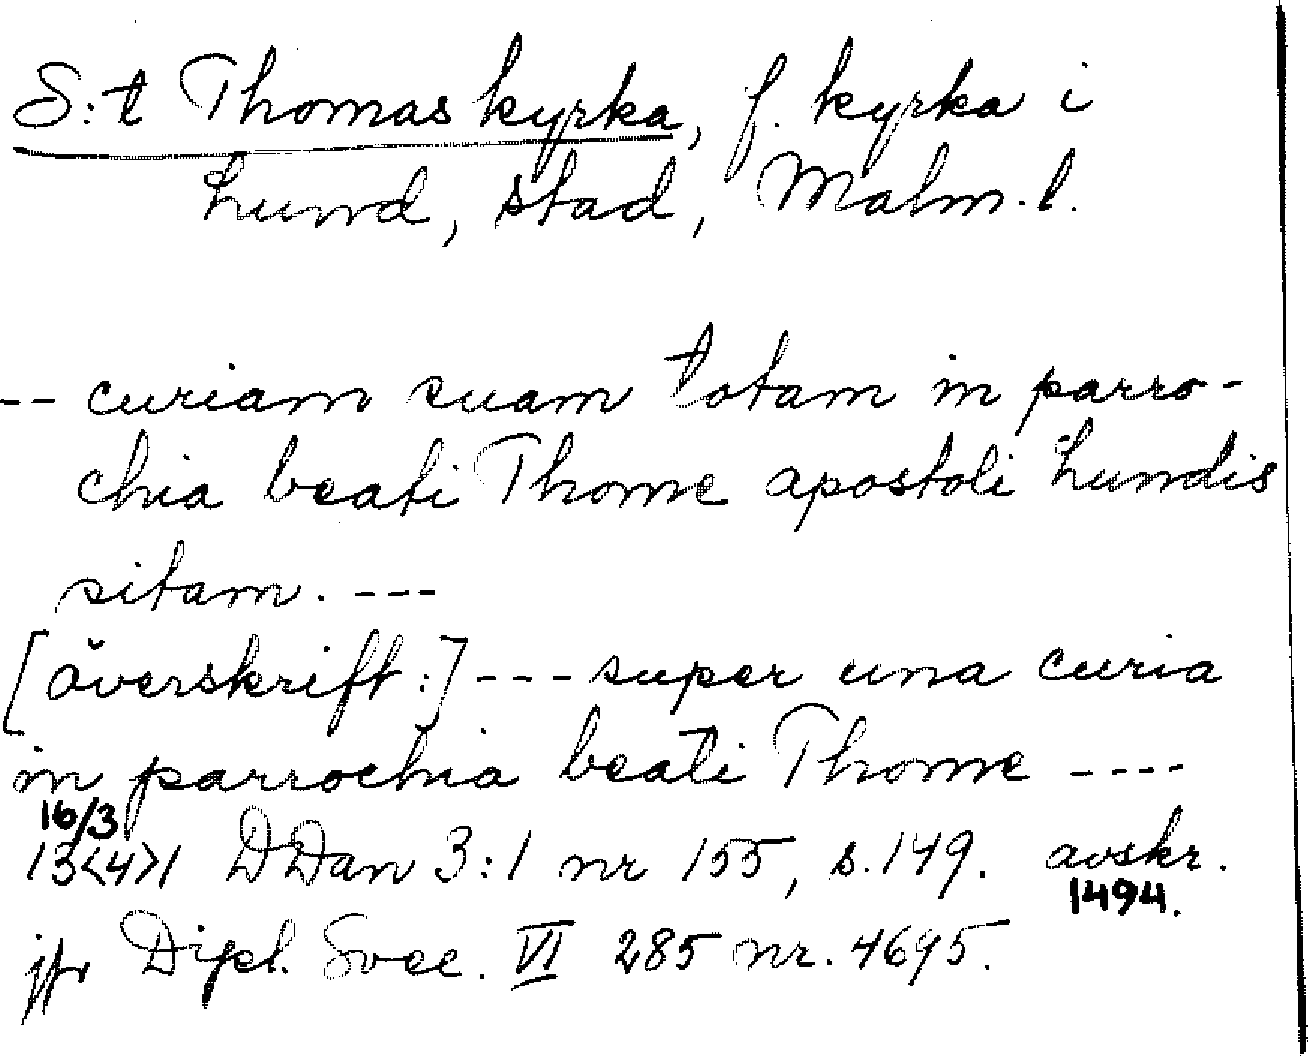 S:t Thomas kyrka, f. kyrka i
Lund, stad, Malm. l.
-- curiam suam totam in parro-
chia beati Thome apostoli Lundis
sitam. ---
[överskrift:] --- super una curia
in parrochia beati Thome ----
16/3
13<4>1 DDan 3:1 nr 155, s. 149. avskr.
1494.
jfr Dipl. Svec. VI 285 nr. 4695.